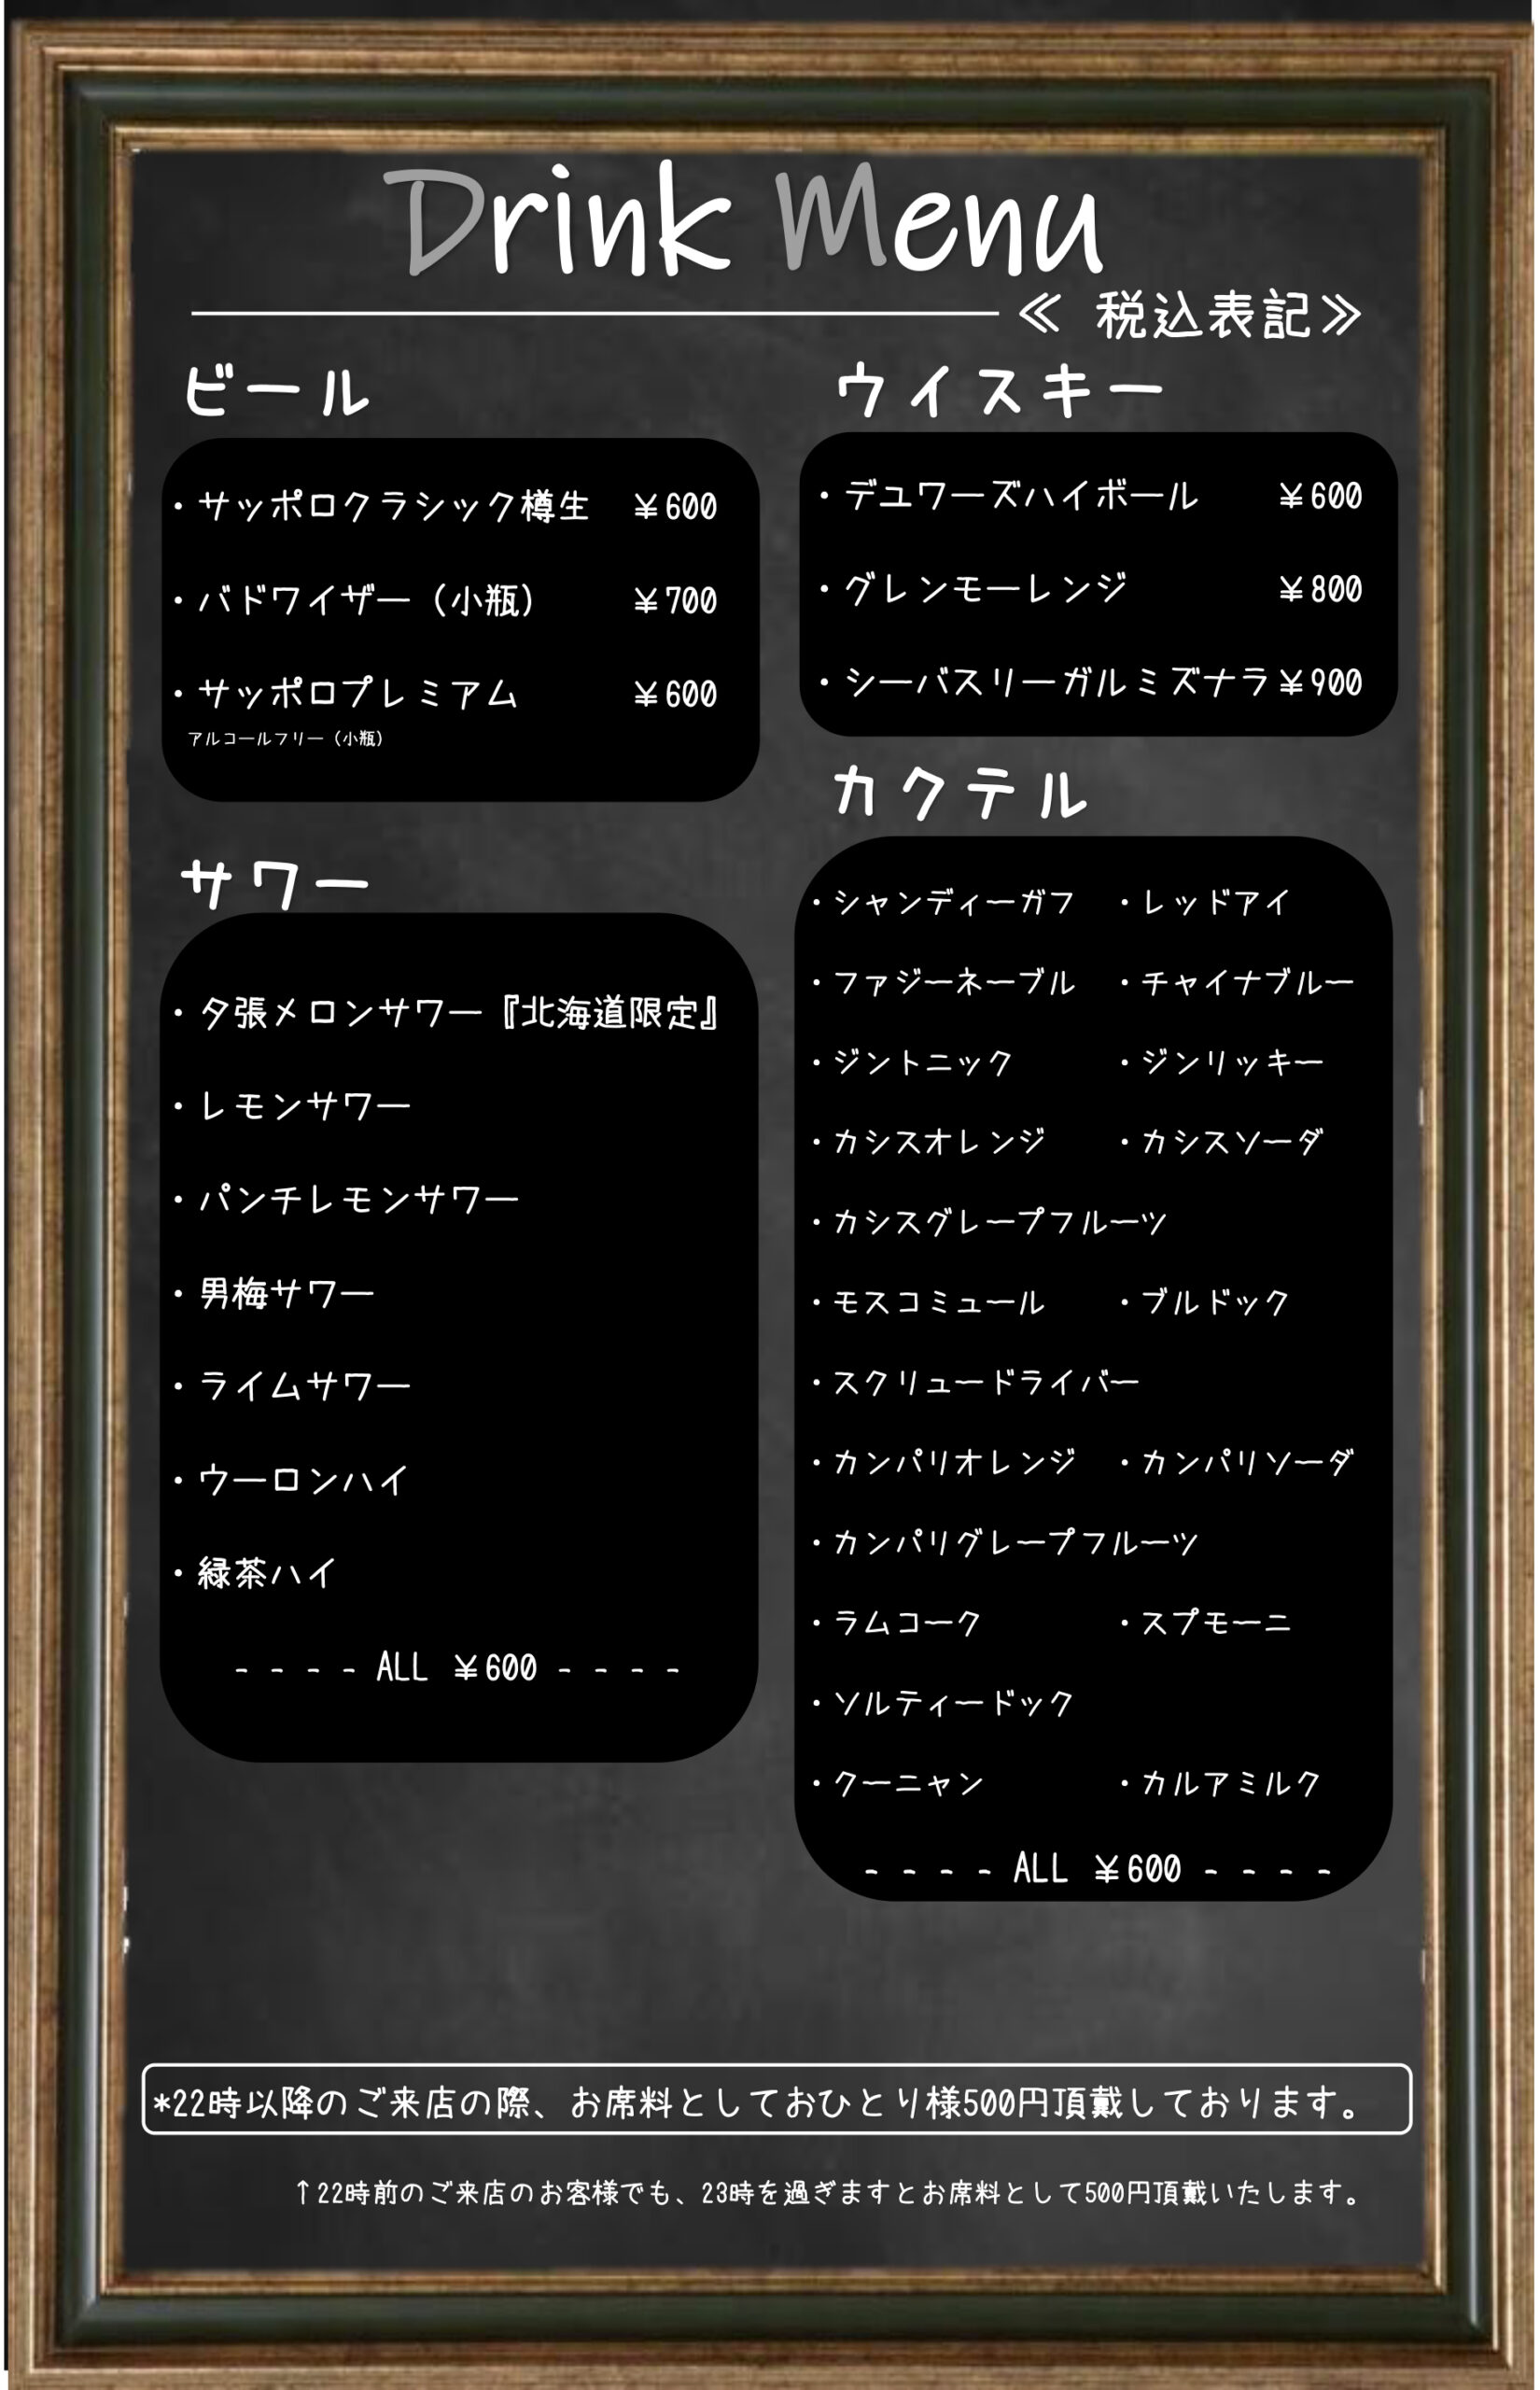 Drink Menu
≪ 税込表記≫
ビール
・サッポロクラシック樽生 ¥600
・バドワイザー（小瓶） ¥700
・サッポロプレミアム ¥600
アルコールフリー（小瓶）
サワー
・夕張メロンサワー『北海道限定』
・レモンサワー
・パンチレモンサワー
・男梅サワー
・ライムサワー
・ウーロンハイ
・緑茶ハイ
- - - - ALL ¥600 - - - -
ウイスキー
・デュワーズハイボール ¥600
・グレンモーレンジ ¥800
・シーバスリーガルミズナラ¥900
カクテル
・シャンディーガフ ・レッドアイ
・ファジーネーブル ・チャイナブルー
・ジントニック ・ジンリッキー
・カシスオレンジ ・カシスソーダ
・カシスグレープフルーツ
・モスコミュール ・ブルドック
・スクリュードライバー
・カンパリオレンジ ・カンパリソーダ
・カンパリグレープフルーツ
・ラムコーク ・スプモーニ
・ソルティードック
・クーニャン ・カルアミルク
- - - - ALL ¥600 - - - -
*22時以降のご来店の際、お席料としておひとり様500円頂戴しております。
↑22時前のご来店のお客様でも、23時を過ぎますとお席料として500円頂戴いたします。